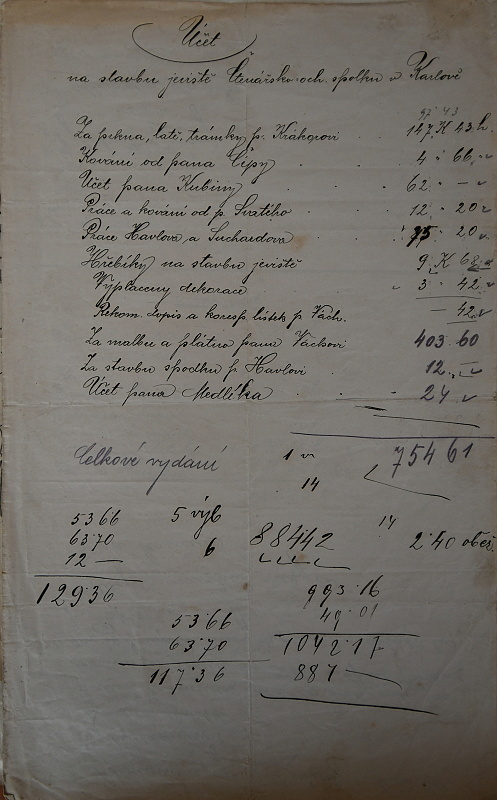 Účet
na stavbu jeviště Čtenářsko-och. spolku v Karlově
97 43
Za prkna, latě, trámky p. Krákorovi 147 K 43 h.
Kování od pana Čípy 4 " 66 "
Účet pana Kubiny 62 " — "
Práce a kování od p. Svatého 12 " 20 "
Práce Havlova a Suchardova 75 " 20 "
Hřebíky na stavbu jeviště 9 K 68
Vyplaceny dekorace " 3 " 42 "
Rekom. dopis a koresp. lístek p. Vách. — 42 "
Za malbu a plátno panu Váchovi 403 60
Za stavbu spodku p. Havlovi 12 " — "
Účet pana Medlíka 24 "
Celkové vydání 754 61
14
53 66 5 výb 14
63 70 6 884 42 2·40
12 —
129 36 993·16
53·66 49 01
63·70 1042·17
117·36 887 —